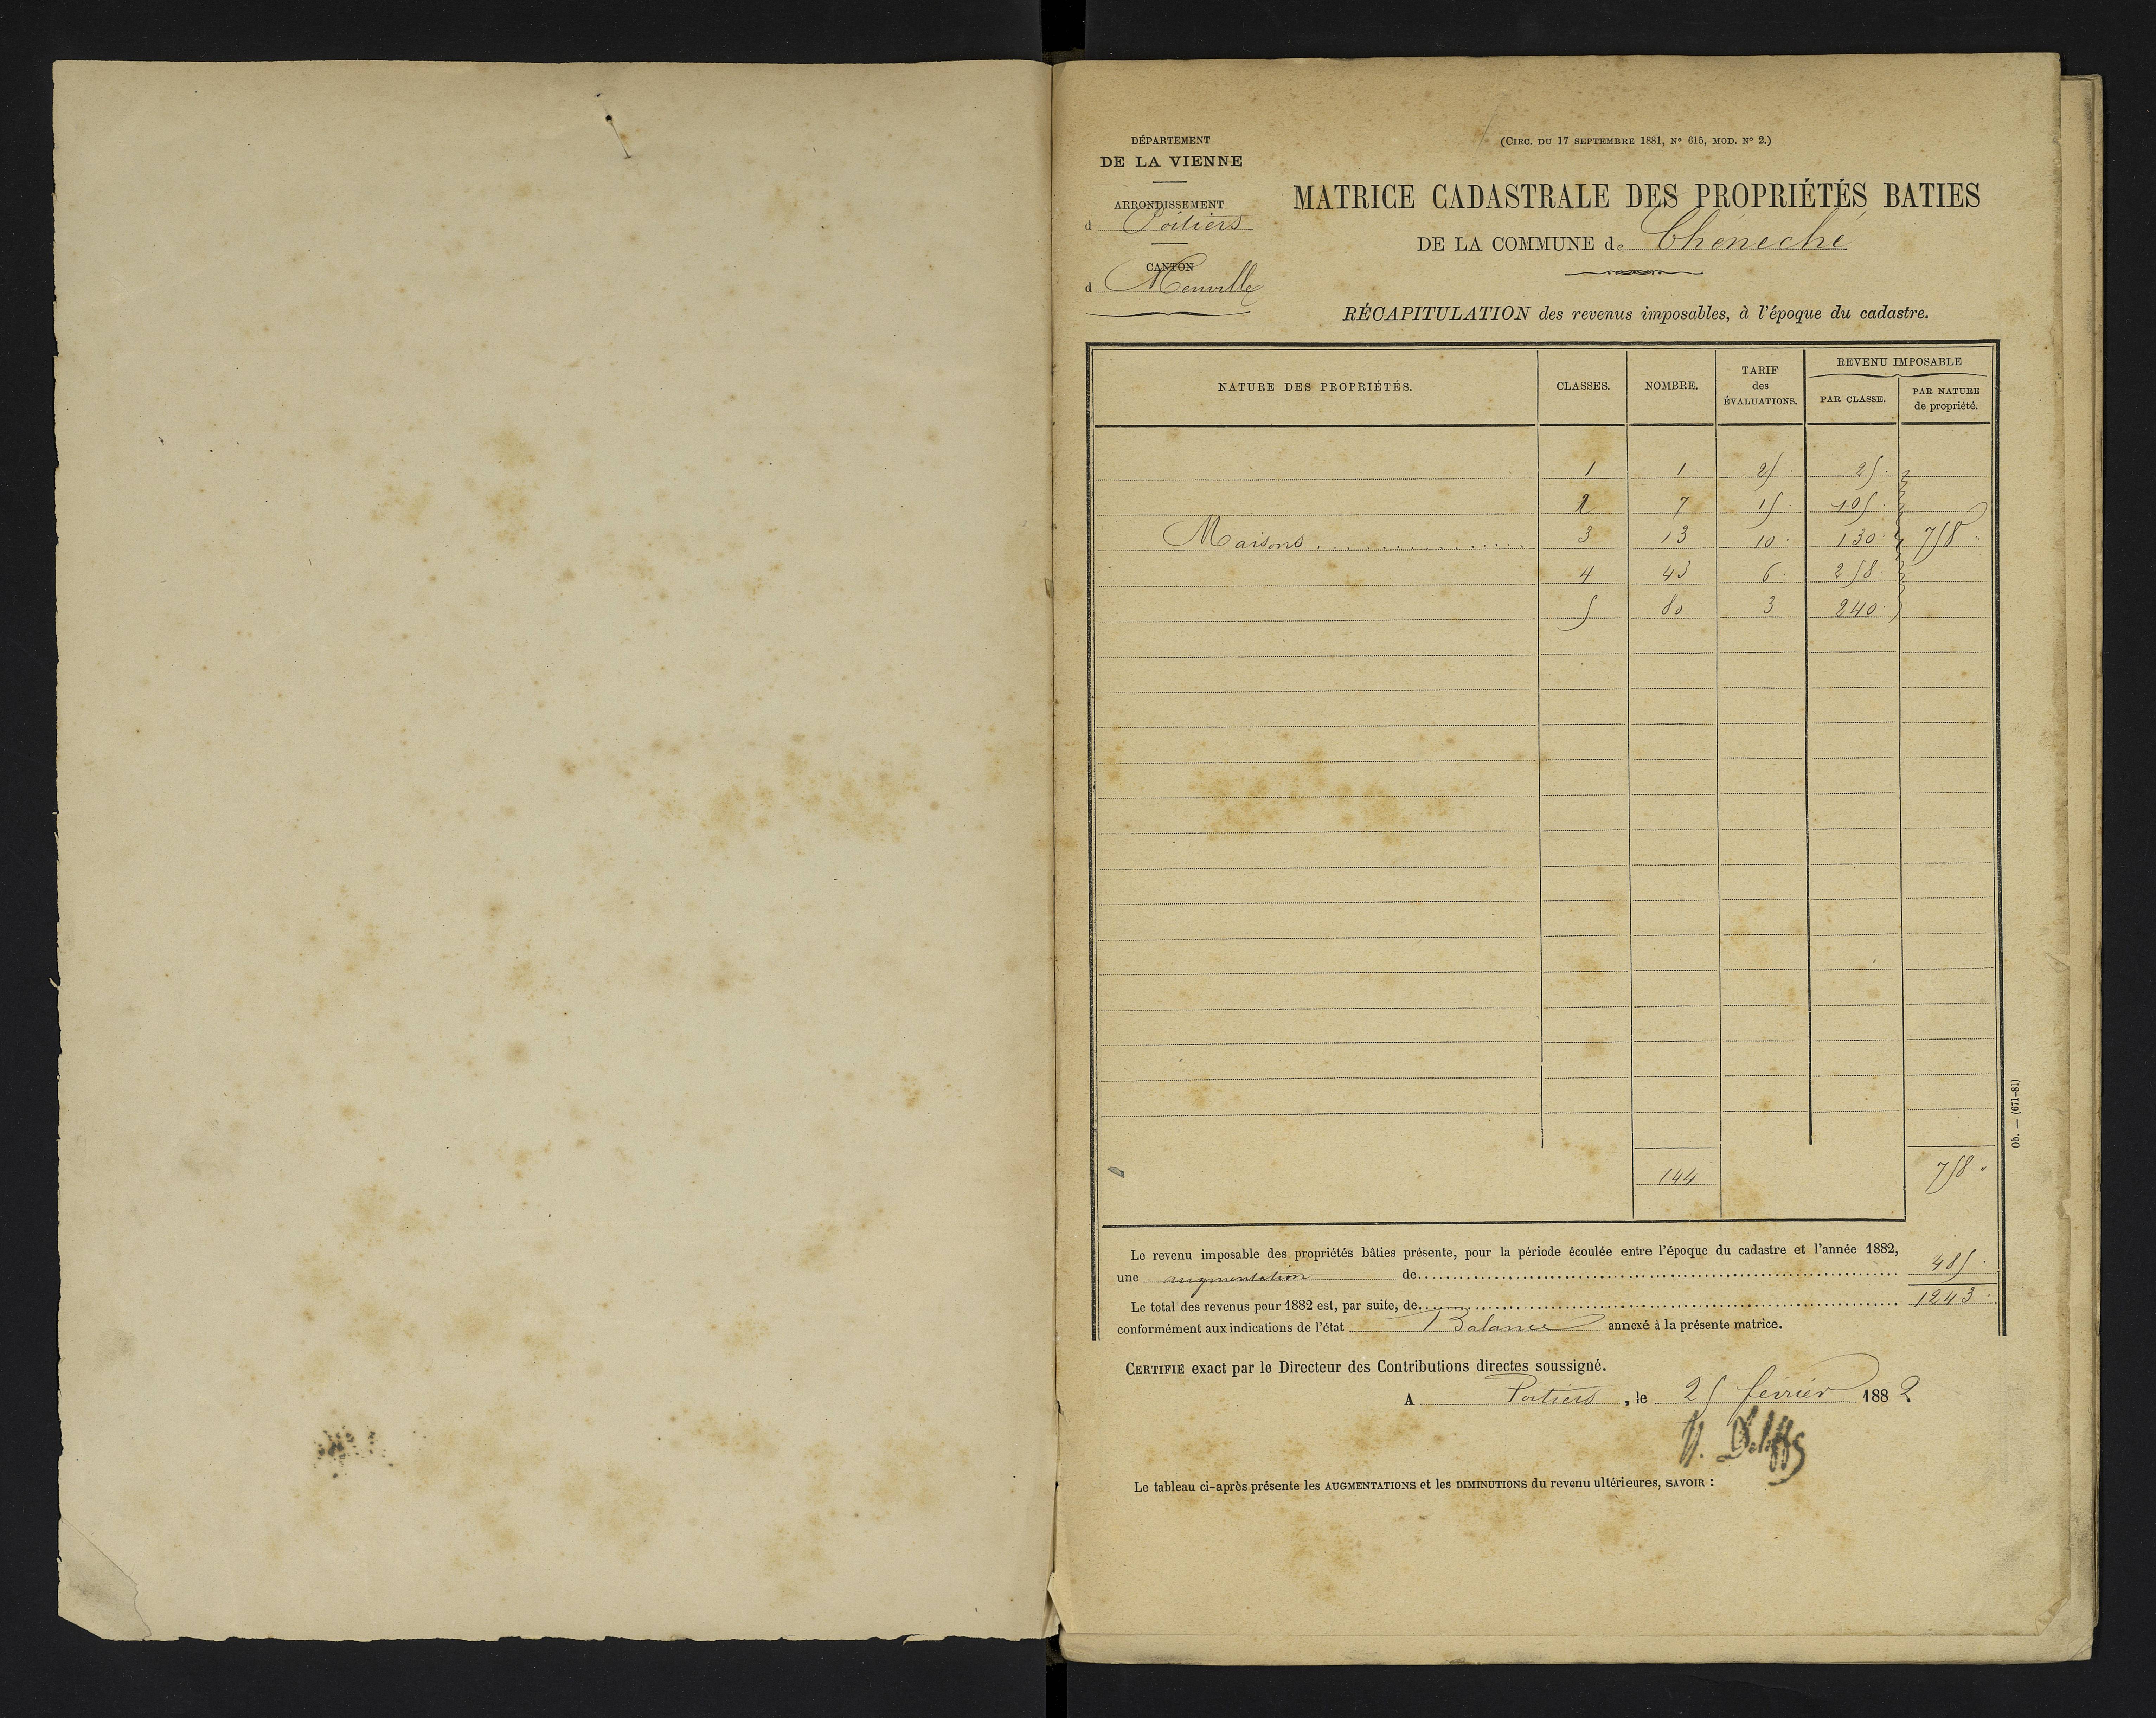 DÉPARTEMENT
DE LA VIENNE
ARRONDISSEMENT
d Poitiers
CANTON
d Neuville
(CIRC. DU 17 SEPTEMBRE 1881, N° 615, MOD. N° 2.)
MATRICE CADASTRALE DES PROPRIÉTÉS BATIES
DE LA COMMUNE de Chéneché
RÉCAPITULATION des revenus imposables, à l'époque du cadastre.
NATURE DES PROPRIÉTÉS. CLASSES. NOMBRE. TARIF des ÉVALUATIONS. REVENU IMPOSABLE
PAR CLASSE. PAR NATURE de propriété.
1 1 25 25
2 7 15 105
Maisons 3 13 10 130 758 "
4 43 6 258
5 80 3 240
144 758 "
Le revenu imposable des propriétés bâties présente, pour la période écoulée entre l'époque du cadastre et l'année 1882,
une augmentation de 485
Le total des revenus pour 1882 est, par suite, de 1243
conformément aux indications de l'état Balance annexé à la présente matrice.
CERTIFIÉ exact par le Directeur des Contributions directes soussigné.
A Poitiers, le 25 février 1882
Le tableau ci-après présente les AUGMENTATIONS et les DIMINUTIONS du revenu ultérieures, SAVOIR :
Ob. — (671-81)